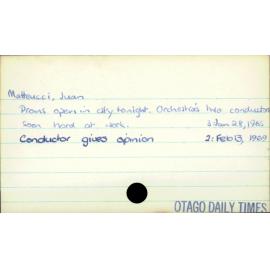 Matteucci, Juan
Proms open in city tonight. Orchestra's two conductors
soon hard at work. 3: Jan 28, 1965
Conductor gives opinion 2: Feb 13, 1969
OTAGO DAILY TIMES